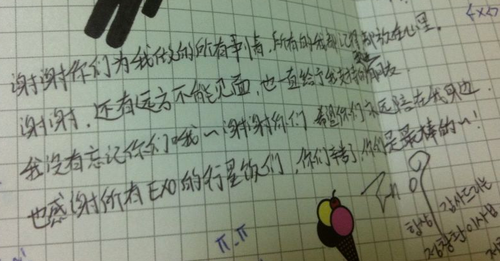 谢谢你们为我做的所有事情，所有的我都记得 我放在心里。
谢谢，还有远方不能见面，也一直给予我支持的朋友
我没有忘记你们哦～谢谢你们 希望你们永远陪在我身边
也感谢所有EXO的行星饭们，你们辛苦了，你们是最棒的~！
π.π
항상 감사드리는